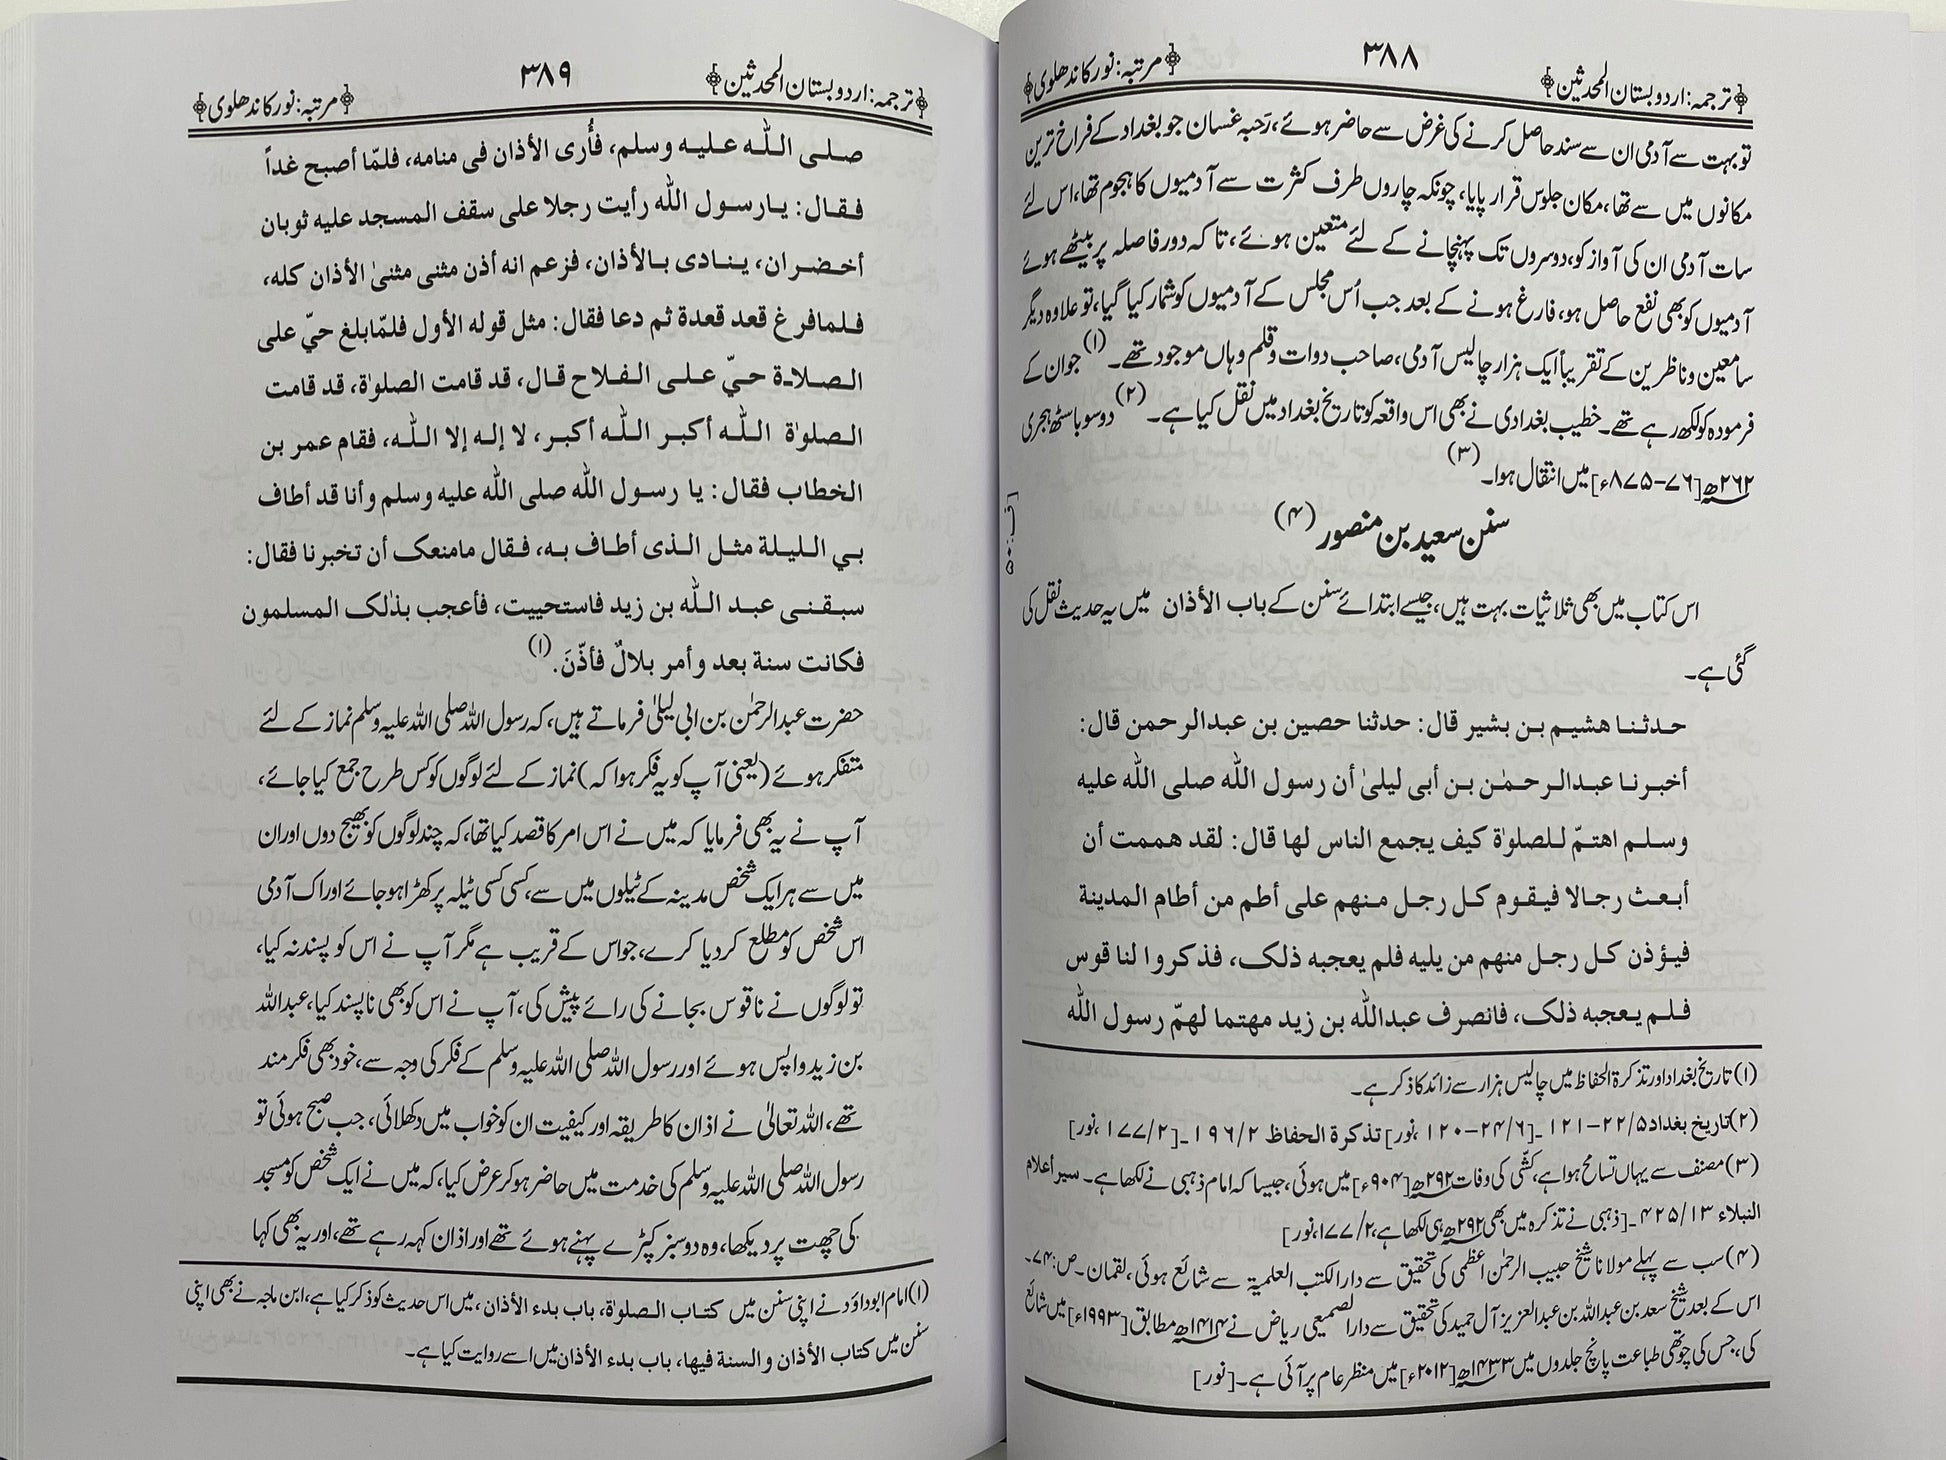 ﴿ترجمہ: اردو بستان المحدثین﴾ ۳۸۸ ﴿مرتبہ: نور کاندھلوی﴾
تو بہت سے آدمی ان سے سند حاصل کرنے کی غرض سے حاضر ہوئے، رَحبہ غسان جو بغداد کے فراخ ترین
مکانوں میں سے تھا، مکان جلوس قرار پایا، چونکہ چاروں طرف کثرت سے آدمیوں کا ہجوم تھا، اس لئے
سات آدمی ان کی آواز کو، دوسروں تک پہنچانے کے لئے متعین ہوئے، تاکہ دور فاصلہ پر بیٹھے ہوئے
آدمیوں کو بھی نفع حاصل ہو، فارغ ہونے کے بعد جب اُس مجلس کے آدمیوں کو شمار کیا گیا، تو علاوہ دیگر
سامعین و ناظرین کے تقریباً ایک ہزار چالیس آدمی، صاحب دوات و قلم وہاں موجود تھے۔ (۱) جو ان کے
فرمودہ کو لکھ رہے تھے۔ خطیب بغدادی نے بھی اس واقعہ کو تاریخ بغداد میں نقل کیا ہے۔ (۲) دو سو باسٹھ ہجری
۲۶۲ھ [۷۶-۸۷۵ء] میں انتقال ہوا۔ (۳)
سنن سعید بن منصور (۴)
[ف: ۵۰
اس کتاب میں بھی ثلاثیات بہت ہیں، جیسے ابتدائے سنن کے باب الأذان میں یہ حدیث نقل کی
گئی ہے۔
حدثنا هشيم بن بشير قال: حدثنا حصين بن عبدالرحمن قال:
أخبرنا عبدالرحمٰن بن أبی لیلیٰ أن رسول الله صلی الله علیه
وسلم اهتمّ للصلوٰة کیف یجمع الناس لها قال: لقد هممت أن
أبعث رجالا فیقوم کل رجل منهم علی أطم من أطام المدینة
فیؤذن کل رجل منهم من یلیه فلم یعجبه ذلک، فذکروا لنا قوس
فلم یعجبه ذلک، فانصرف عبدالله بن زید مهتما لهمّ رسول الله
(۱) تاریخ بغداد اور تذکرۃ الحفاظ میں چالیس ہزار سے زائد کا ذکر ہے۔
(۲) تاریخ بغداد ۵/۲۲-۱۲۱ ۔[۶/۲۴-۱۲۰، نور] تذکرة الحفاظ ۲/۱۹۶ ۔[۲/۱۷۷، نور]
(۳) مصنف سے یہاں تسامح ہوا ہے، کشّی کی وفات ۲۹۲ھ [۹۰۴ء] میں ہوئی، جیسا کہ امام ذہبی نے لکھا ہے۔ سیر أعلام
النبلاء ۱۳/۴۲۵ ۔[ذہبی نے تذکرہ میں بھی ۲۹۲ھ ہی لکھا ہے، ۲/۱۷۷، نور]
(۴) سب سے پہلے مولانا شیخ حبیب الرحمٰن اعظمی کی تحقیق سے دارالکتب العلمیۃ سے شائع ہوئی، لقمان۔ ص: ۷۴۔
اس کے بعد شیخ سعد بن عبداللہ بن عبدالعزیز آل حمید کی تحقیق سے دار الصمیعی ریاض نے ۱۴۱۴ھ مطابق [۱۹۹۳ء] میں شائع
کی، جس کی چوتھی طباعت پانچ جلدوں میں ۱۴۳۳ھ [۲۰۱۲ء] میں منظر عام پر آئی ہے۔ [نور]
﴿ترجمہ: اردو بستان المحدثین﴾ ۳۸۹ ﴿مرتبہ: نور کاندھلوی﴾
صلی الله علیه وسلم، فأُری الأذان فی منامه، فلمّا أصبح غداً
فقال: یا رسول الله رأیت رجلا علی سقف المسجد علیه ثوبان
أخضران، ینادی بالأذان، فزعم انه أذن مثنی مثنیٰ الأذان کله،
فلما فرغ قعد قعدة ثم دعا فقال: مثل قوله الأول فلمّا بلغ حيّ علی
الصلاة حيّ علی الفلاح قال، قد قامت الصلوٰة، قد قامت
الصلوٰة الله أکبر الله أکبر، لا إله إلا الله، فقام عمر بن
الخطاب فقال: یا رسول الله صلی الله علیه وسلم وأنا قد أطاف
بي اللیلة مثل الذی أطاف به، فقال مامنعک أن تخبرنا فقال:
سبقنی عبد الله بن زید فاستحییت، فأعجب بذٰلک المسلمون
فکانت سنة بعد وأمر بلالٌ فأذّنَ. (۱)
حضرت عبدالرحمٰن بن ابی لیلیٰ فرماتے ہیں، کہ رسول اللہ صلی اللہ علیہ وسلم نماز کے لئے
متفکر ہوئے (یعنی آپ کو یہ فکر ہوا کہ) نماز کے لئے لوگوں کو کس طرح جمع کیا جائے،
آپ نے یہ بھی فرمایا کہ میں نے اس امر کا قصد کیا تھا، کہ چند لوگوں کو بھیج دوں اور ان
میں سے ہر ایک شخص مدینہ کے ٹیلوں میں سے، کسی کسی ٹیلہ پر کھڑا ہو جائے اور اک آدمی
اس شخص کو مطلع کر دیا کرے، جو اس کے قریب ہے مگر آپ نے اس کو پسند نہ کیا،
تو لوگوں نے ناقوس بجانے کی رائے پیش کی، آپ نے اس کو بھی ناپسند کیا، عبداللہ
بن زید واپس ہوئے اور رسول اللہ صلی اللہ علیہ وسلم کے فکر کی وجہ سے، خود بھی فکر مند
تھے، اللہ تعالیٰ نے اذان کا طریقہ اور کیفیت ان کو خواب میں دکھلائی، جب صبح ہوئی تو
رسول اللہ صلی اللہ علیہ وسلم کی خدمت میں حاضر ہو کر عرض کیا، کہ میں نے ایک شخص کو مسجد
کی چھت پر دیکھا، وہ دو سبز کپڑے پہنے ہوئے تھے اور اذان کہہ رہے تھے، اور یہ بھی کہا
(۱) امام ابوداؤد نے اپنی سنن میں کتاب الصلوٰة، باب بدء الأذان، میں اس حدیث کو ذکر کیا ہے، ابن ماجہ نے بھی اپنی
سنن میں کتاب الأذان والسنة فیها، باب بدء الأذان میں اسے روایت کیا ہے۔